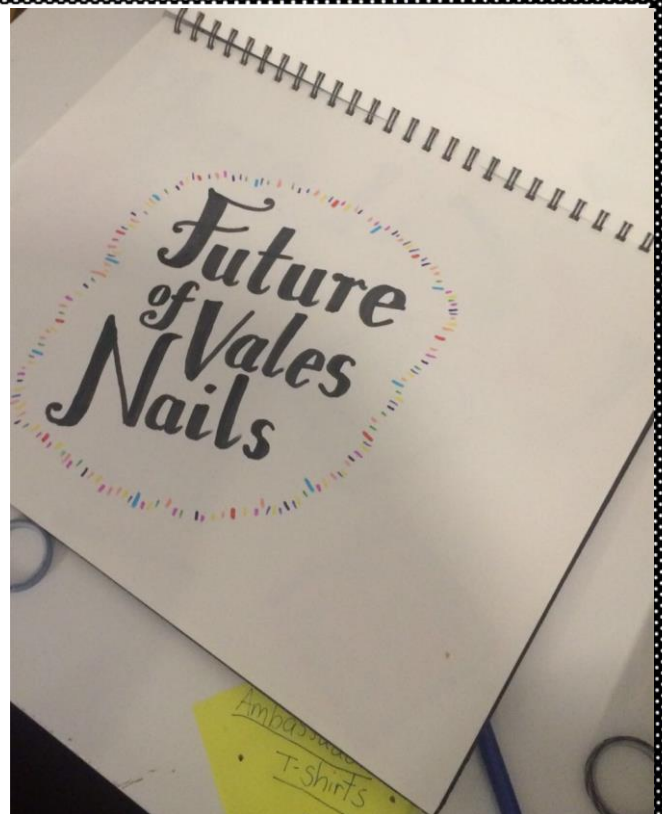 Future
of Vales
Nails
Ambassado
• T-shirts •